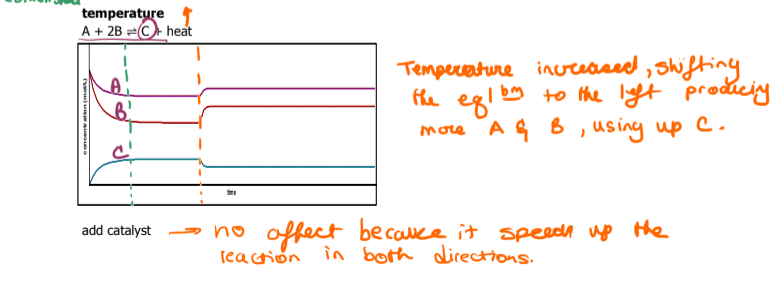 temperature ↑
A + 2B ⇌ C + heat
Temperature increased, shifting
the eqlbm to the left producing
more A & B, using up C.
concentration (mol/L)
A
B
C
time
add catalyst → no affect because it speeds up the
reaction in both directions.